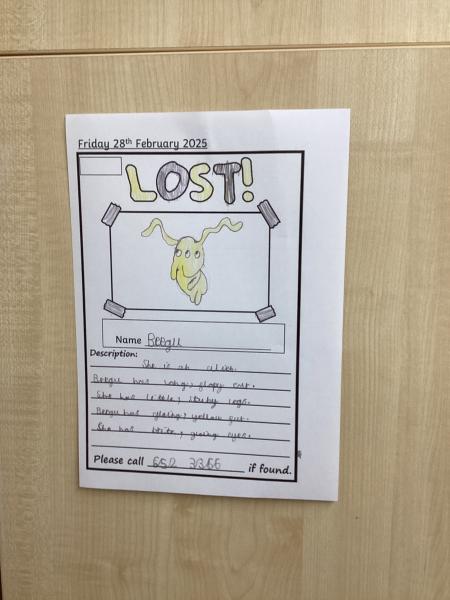 Friday 28th February 2025
LOST!
Name Beegu
Description:
She is an alien.
Beegu has long, flopy ears.
She has little, legs.
Beegu has yellow
She has eyes.
Please call 652 3366 if found.